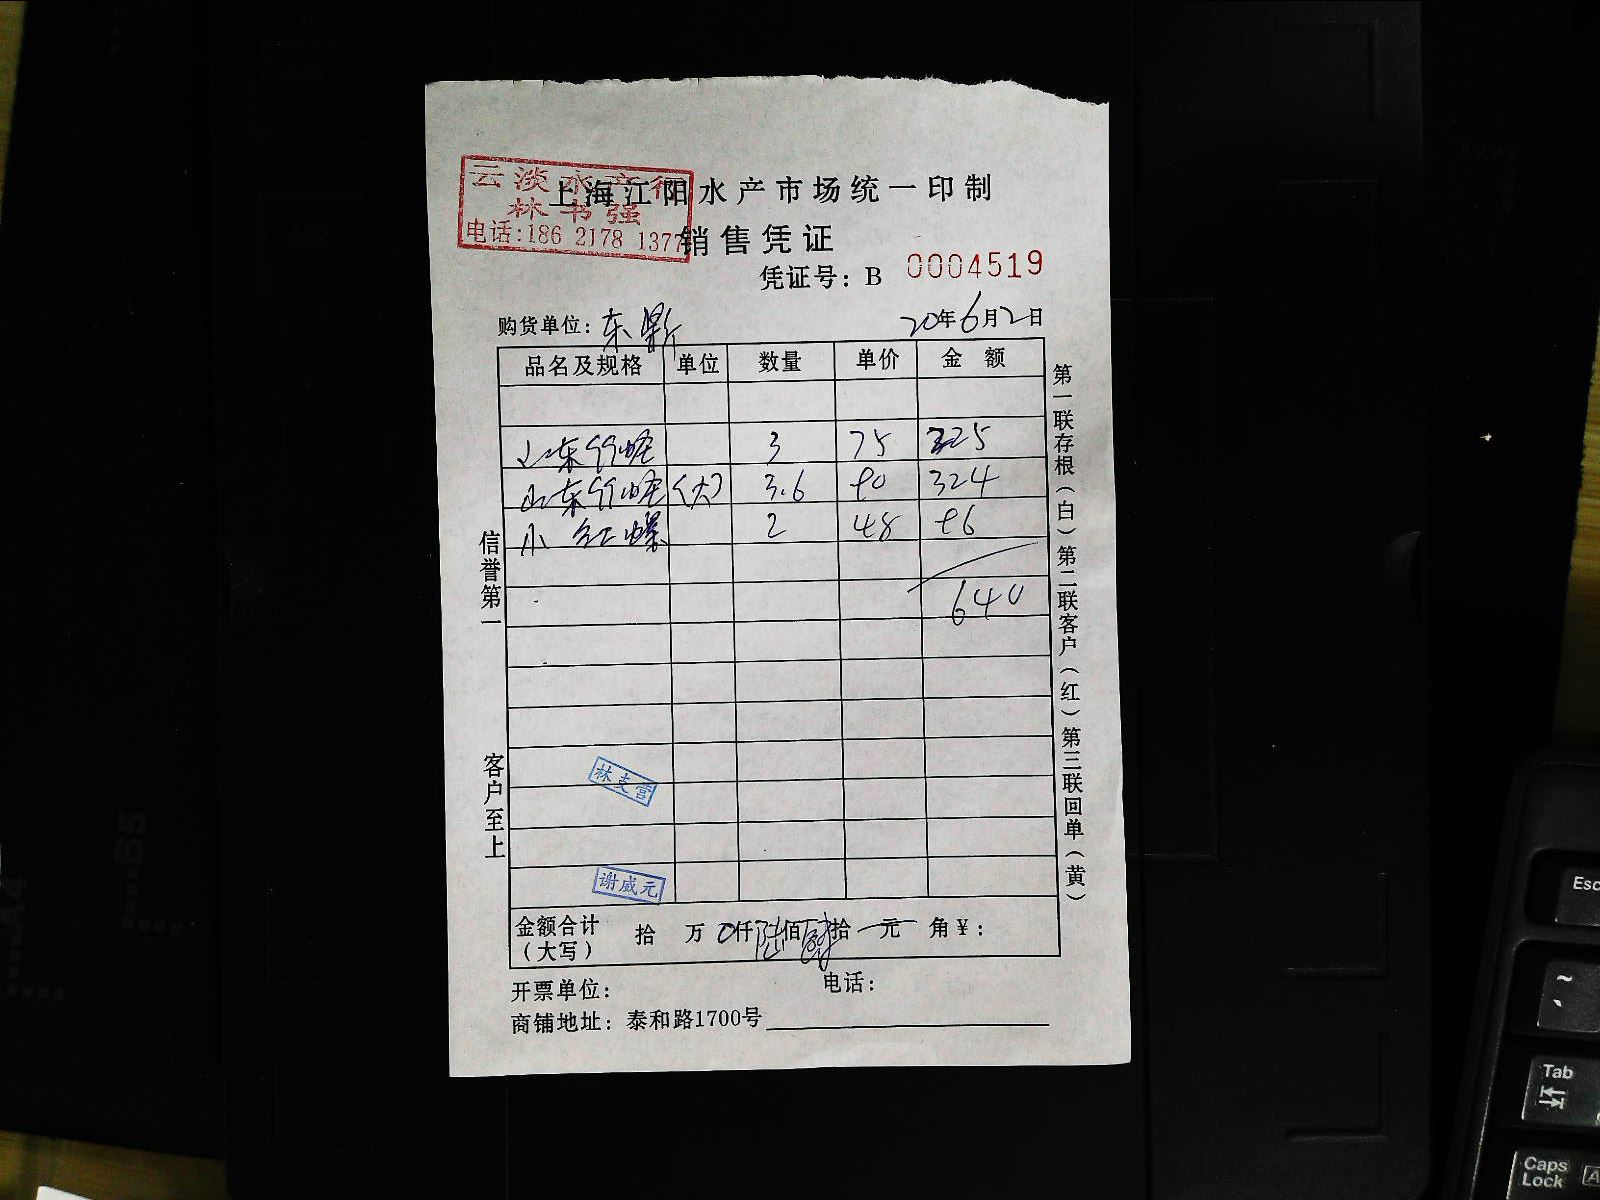 云淡水产行
林书强
电话:186 2178 1377
上海江阳水产市场统一印制
销售凭证
凭证号：B 0004519
购货单位：东鼎 20年6月2日
品名及规格 单位 数量 单价 金额
山东竹蛏 3 75 225
山东竹蛏(大) 3.6 90 324
小红螺 2 48 96
640
信誉第一
客户至上
第一联存根（白）第二联客户（红）第三联回单（黄）
林支营
谢威元
金额合计（大写） 拾 万 0仟陆佰肆拾 元 角¥：
开票单位： 电话：
商铺地址：泰和路1700号
Esc
~
Tab
Caps Lock
A
A4
B5